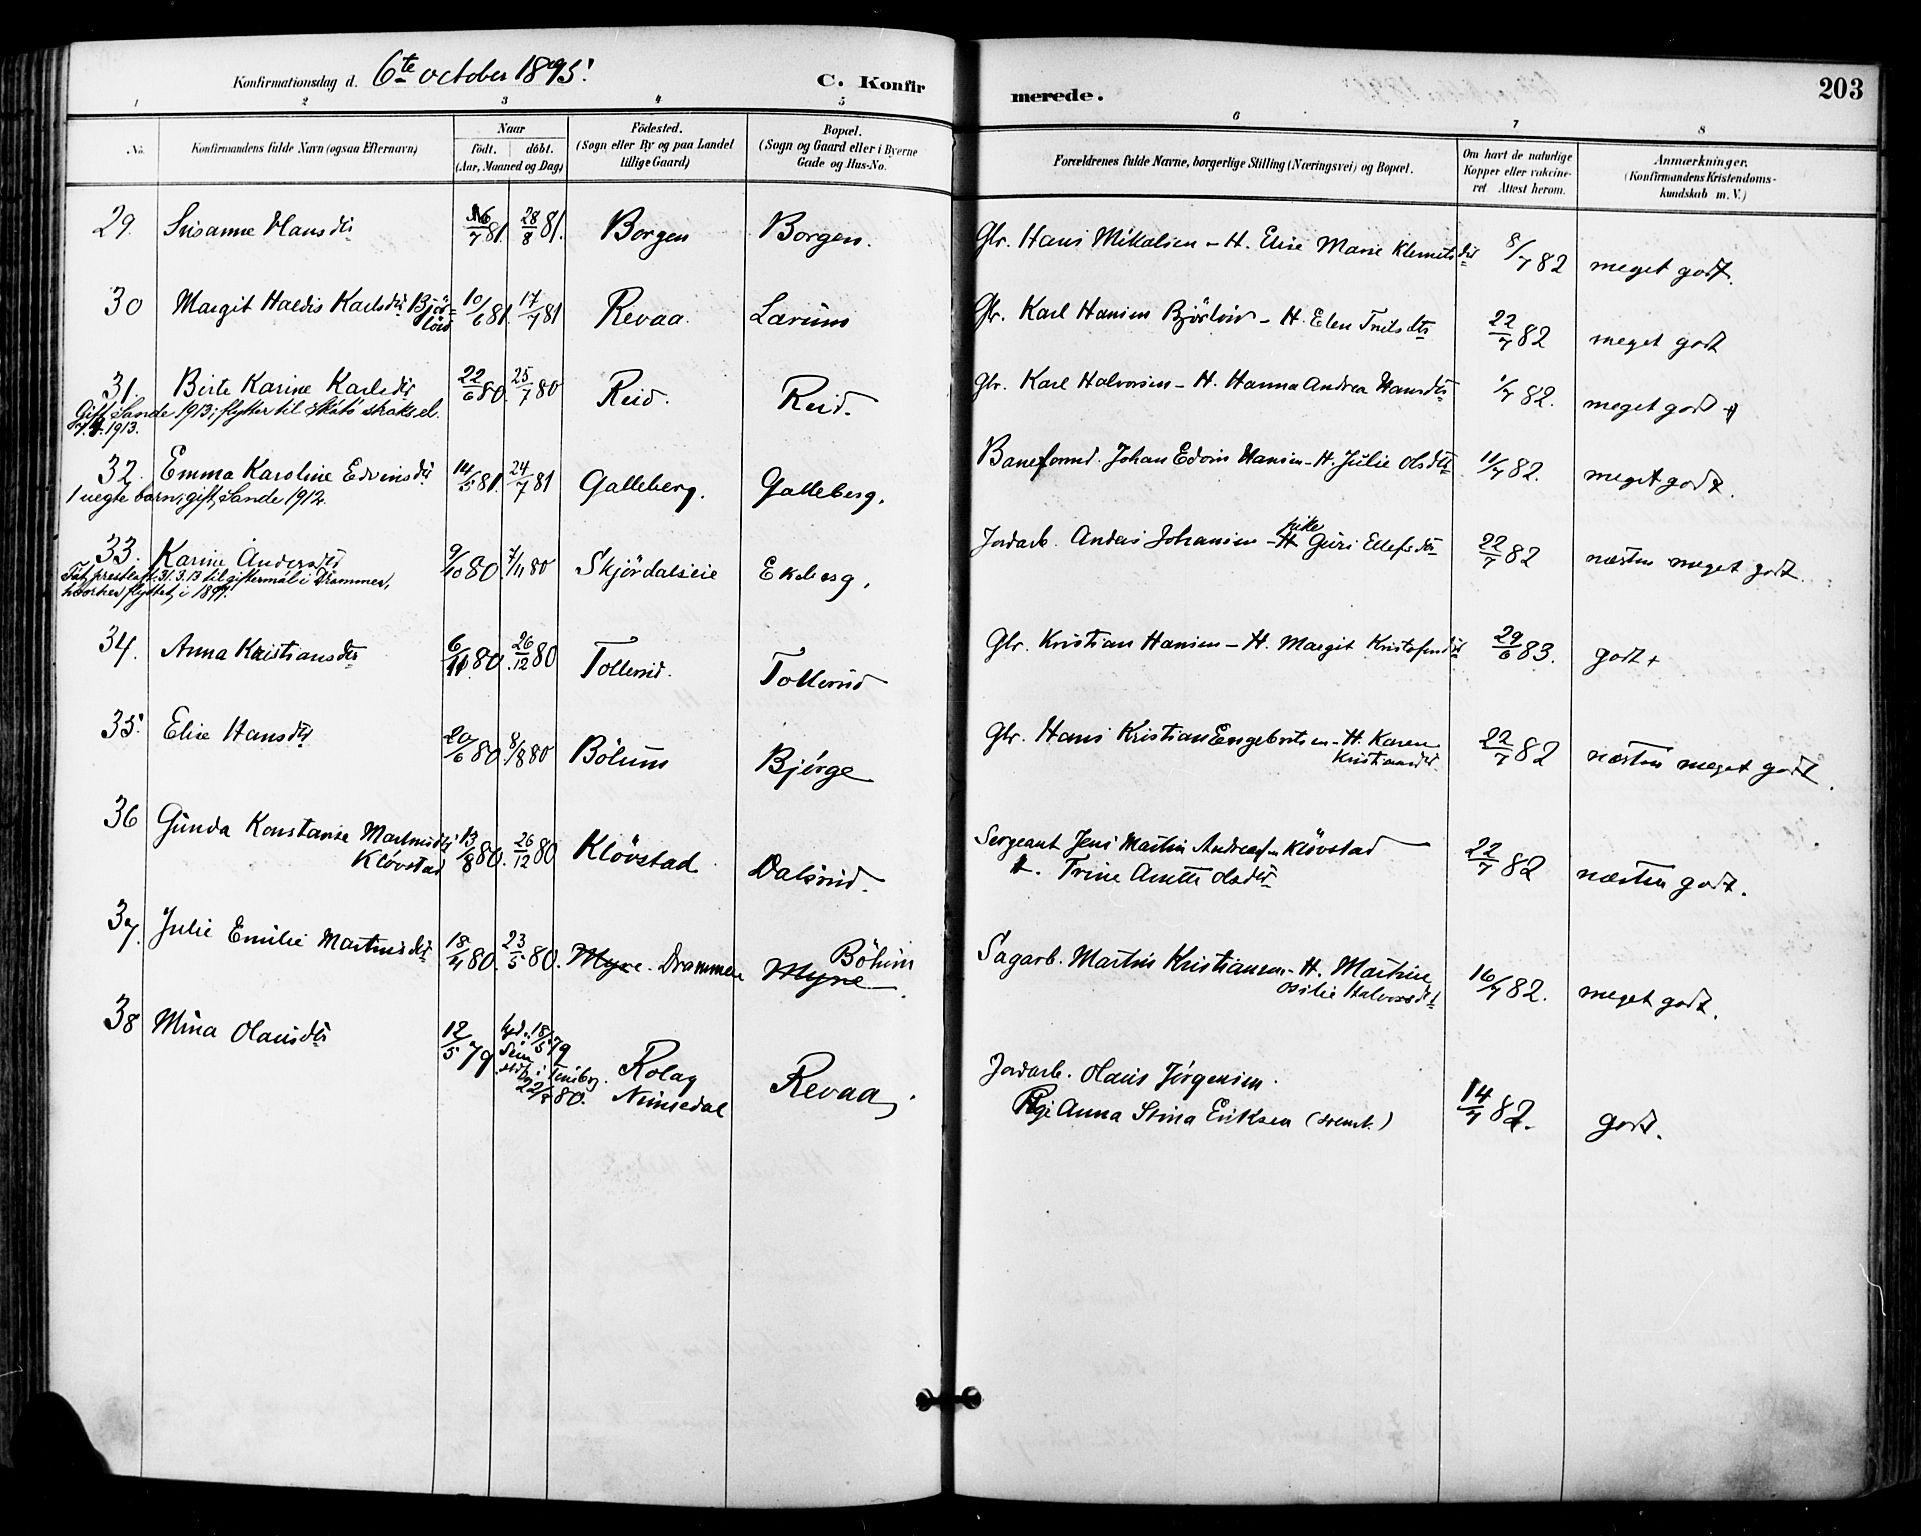 Konfirmationsdag d. 6te october 1895. C. Konfirmerede. 203
1 2 3 4 5 6 7 8
No. Konfirmandens fulde Navn (ogsaa Efternavn) Naar födt. döbt. (Aar, Maaned og Dag) Födested. (Sogn eller By og paa Landet tillige Gaard) Bopæl. (Sogn og Gaard eller i Byerne Gade og Hus-No. Forældrenes fulde Navne, borgerlige Stilling (Næringsvei) og Bopæl. Om havt de naturlige Kopper eller vakcineret. Attest herom. Anmærkninger. (Konfirmandens Kristendomskundskab m. V.)
29. Susanne Hansdtr 16/7 81. 28/8 81. Borgen Borgen. Gbr. Hans Mikalsen - H. Elise Marie Klemetsdtr 8/7 82 meget godt.
30 Margit Haldis Karlsdtr Björlöw 10/6 81. 17/7 81 Revaa. Lærum Gbr. Karl Hansen Björlöw - H. Elen Truls dtr 22/7 82 meget godt
31. Birte Karine Karlsdtr 22/6 80. 25/7 80 Reid. Reid. Gbr. Karl Halvorsen - H. Hanna Andrea Hansdtr 1/7 82. meget godt +
Gift, Sande 1913; flytter til Skåtö straks el.
1913.
32. Emma Karoline Edvinsdtr 14/5 81. 24/7 81 Galleberg. Galleberg. Baneformd. Johan Edvin Hansen - H. Julie Olsdtr 11/7 82. meget godt.
1 uegte barn; gift, Sande 1912.
33. Karine Andersdtr 9/10 80. 7/11 80 Skjördalseie Ekeberg. Jordarb. Anders Johansen - H pike Guri Ellefsdtr 22/7 82 næsten meget godt.
Fåt presteatt. 31.3.13 til giftermål i Drammen,
hvorhen flyttet i 1897.
34. Anna Kristiansdtr 6/11 80. 26/12 80 Tollerud. Tollerud Gbr. Kristian Hansen - H. Margit Kristofersdtr 29/6 83. godt +
35. Elise Hansdtr 20/6 80. 8/8 80 Bölum Bjérge Gbr. Hans Kristian Engebretsen - H. Karen Kristiansdtr 22/7 82 næsten meget godt.
36 Gunda Konstanse Martinsdtr Klövstad 13/8 80. 26/12 80 Klövstad Dalsrud. Sergeant Jens Martin Andreasen Klövstad
H. Trine Anette Olsdtr 22/7 82 næsten godt.
37. Julie Emilie Martinsdtr 18/4 80. 23/5 80. Myre. Drammen Myre Bölum Sagarb. Martin Kristiansen - H. Martine Osilie Halvorsdtr 16/7 82. meget godt.
38 Mina Olausdtr 12/5 79 hjd. 18/5 79 22/8 80. Rolag Numedal Revaa Jordarb. Olaus Jörgensen.
Pige Anna Stina Eriksen (svensk.) 14/7 82. godt.